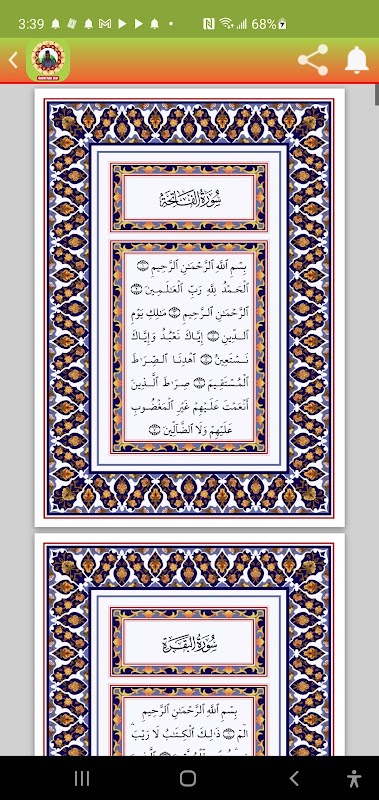 3:39
68%
سُورَةُ الفَاتِحَةِ
بِسْمِ ٱللَّهِ ٱلرَّحْمَٰنِ ٱلرَّحِيمِ
ٱلْحَمْدُ لِلَّهِ رَبِّ ٱلْعَٰلَمِينَ
ٱلرَّحْمَٰنِ ٱلرَّحِيمِ مَٰلِكِ يَوْمِ
ٱلدِّينِ إِيَّاكَ نَعْبُدُ وَإِيَّاكَ
نَسْتَعِينُ ٱهْدِنَا ٱلصِّرَٰطَ
ٱلْمُسْتَقِيمَ صِرَٰطَ ٱلَّذِينَ
أَنْعَمْتَ عَلَيْهِمْ غَيْرِ ٱلْمَغْضُوبِ
عَلَيْهِمْ وَلَا ٱلضَّآلِّينَ
سُورَةُ البَقَرَةِ
بِسْمِ ٱللَّهِ ٱلرَّحْمَٰنِ ٱلرَّحِيمِ
الٓمٓ ذَٰلِكَ ٱلْكِتَٰبُ لَا رَيْبَ